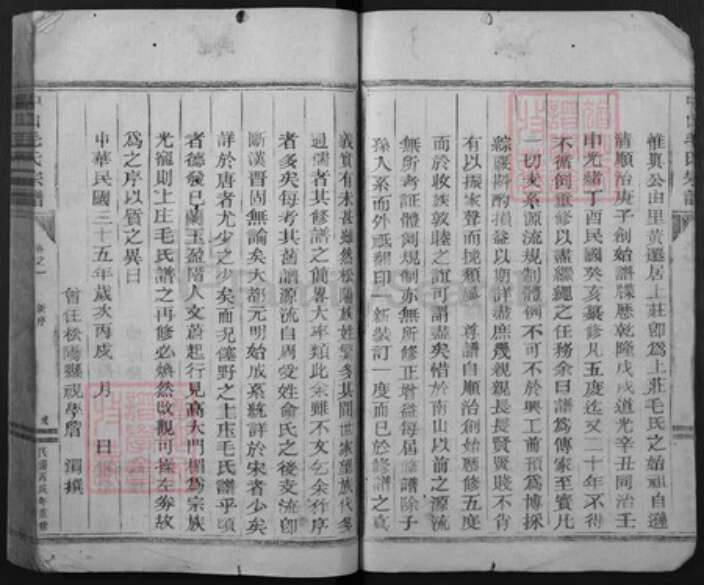 惟與公由里黃遷居上莊卽爲上莊毛氏之始祖自遜
清順治庚子創始譜牒歷乾隆戊戌道光辛丑同治壬
申光緒丁酉民國癸亥纂修凡五度迄又二十年不得
不循例重修以盡繼繩之任務余曰譜爲傳家至寶凡
一切支系源流規制體例不可不於興工前預爲博採
綜覈斟酌損益以期詳盡庶幾親親長長賢賢賤不肖
有以振家聲而挽頹風 尊譜自順治創始歷修五度
而於收族敦睦之誼可謂盡矣惜於南山以前之源流
無所考証體例規制亦無所修正增益每屆修譜除子
孫入系而外祗翻印 新裝訂一度而已於修譜之眞
義實有未甚 雖然松陽族姓繁多其間世家望族代多
通儒者其修譜之簡畧大率類此余雖不文乞余作序
者多矣每考其舊譜源流自周受姓俞氏之後支流卽
斷漢晋固無論矣大都元明始成系統詳於宋者少矣
詳於唐者尤少之少矣而况僻野之上庄毛氏譜乎頃
者德發已蘭玉盈階人文蔚起行見高大門楣爲宗族
光寵則上庄毛氏譜之再修必煥然改觀可操左劵故
爲之序以質之異日
中華民國三十五年歲次丙戌 月 日
曾任松陽縣視學詹 渭撰
毛氏宗譜
卷之一
新序